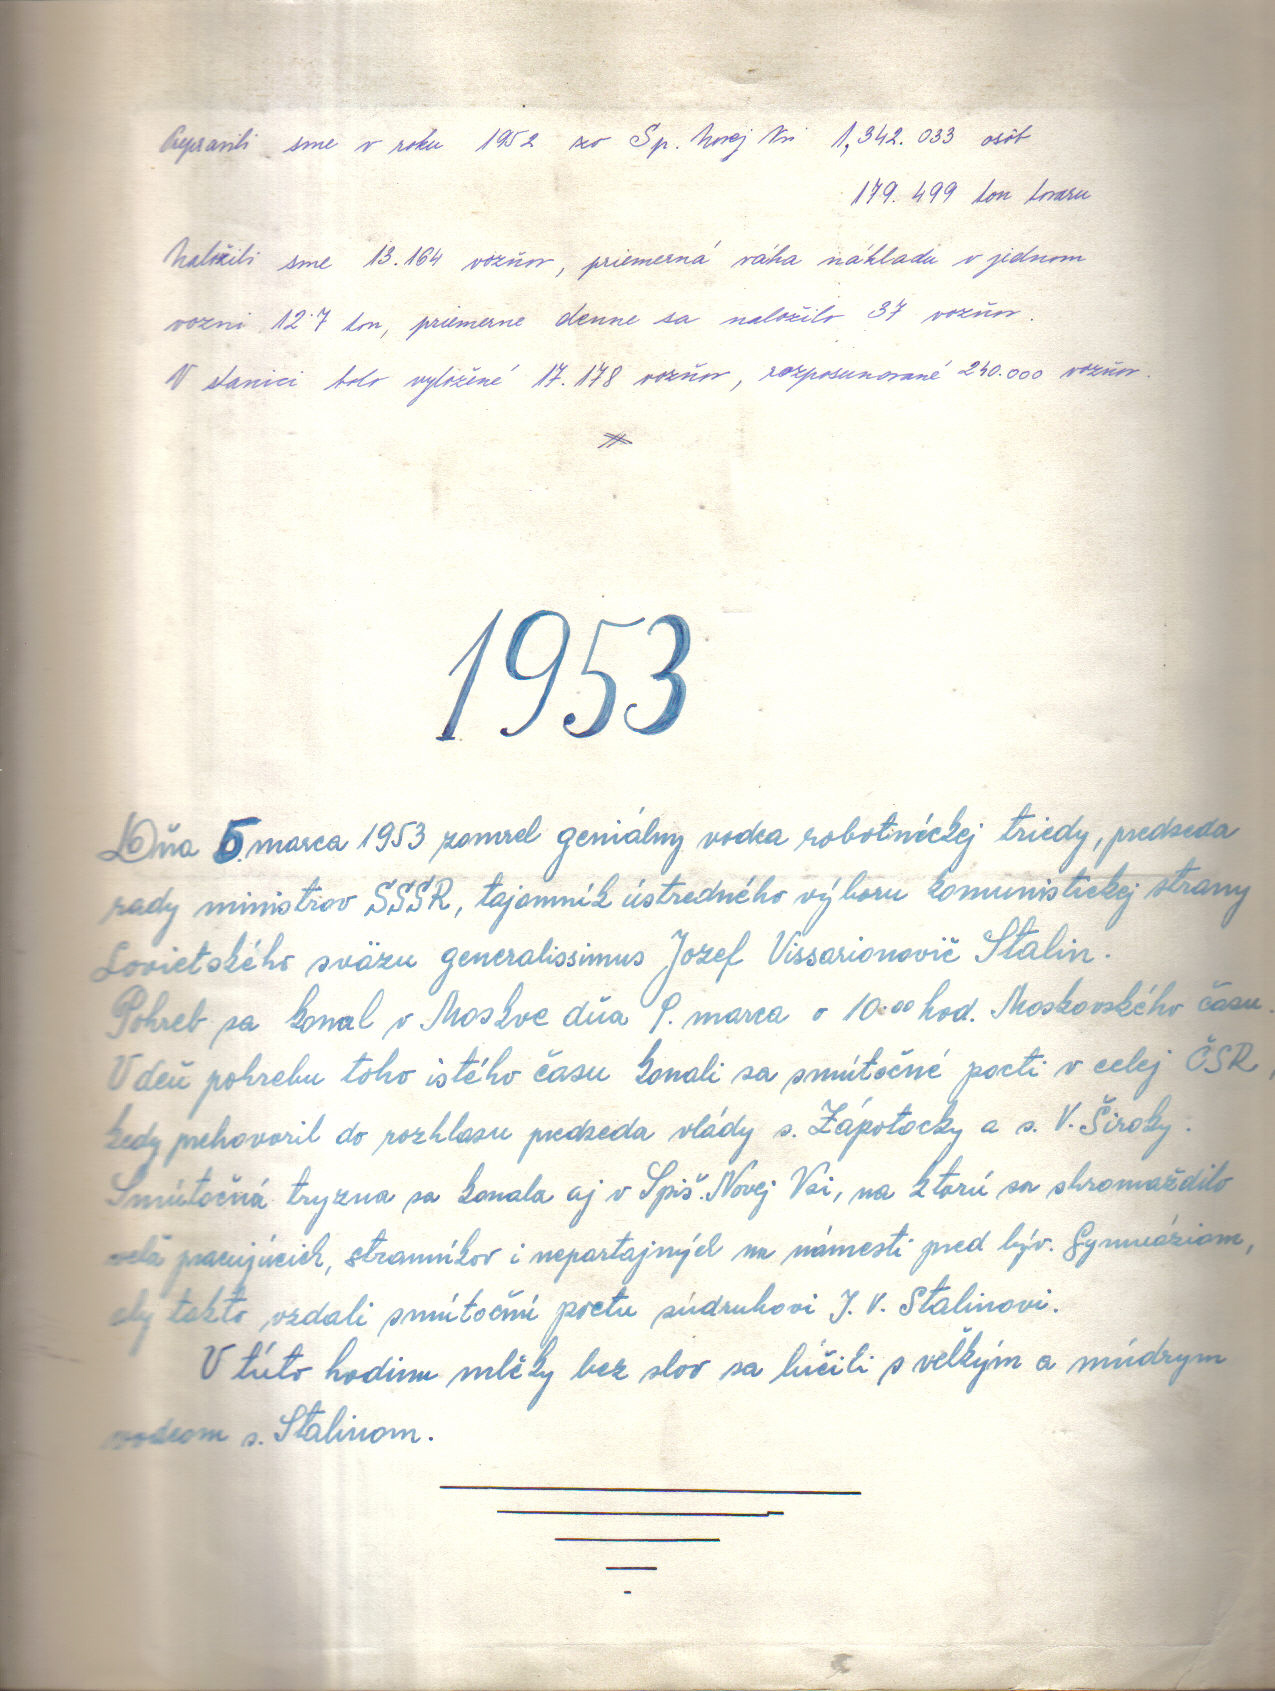 Prepravili sme v roku 1952 zo Sp. Novej Vsi 1,342.033 osôb
179.499 ton tovaru
Naložili sme 13.164 vozňov, priemerná váha nákladu v jednom
vozni 12·7 ton, priemerne denne sa naložilo 37 vozňov.
V stanici bolo vyložené 17.178 vozňov, rozposunované 240.000 vozňov.
1953
Dňa 5. marca 1953 zomrel geniálny vodca robotníckej triedy, predseda
rady ministrov SSSR, tajomník ústredného výboru komunistickej strany
Sovietského sväzu generalissimus Jozef Vissarionovič Stalin.
Pohreb sa konal v Moskve dňa 9. marca o 10.00 hod. Moskovského času.
V deň pohrebu toho istého času konali sa smútočné pocti v celej ČSR,
kedy prehovoril do rozhlasu predseda vlády s. Zápotocky a s. V. Široky.
Smútočná tryzna sa konala aj v Spiš. Novej Vsi, na ktorú sa shromaždilo
pracujúcich, straníkov i nepartajných na námesti pred býv. Gymnáziom,
aby takto vzdali smútočnú poctu súdruhovi J. V. Stalinovi.
V túto hodinu mlčky bez slov sa lúčili s veľkým a múdrym
vodcom s. Stalinom.